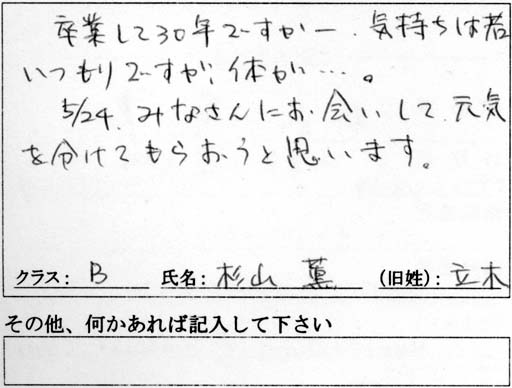 卒業して30年ですかー、気持ちは若
いつもりですが、体が…。
5/24、みなさんにお会いして、元気
を分けてもらおうと思います。
クラス： B 氏名： 杉山 薫 （旧姓）： 立木
その他、何かあれば記入して下さい